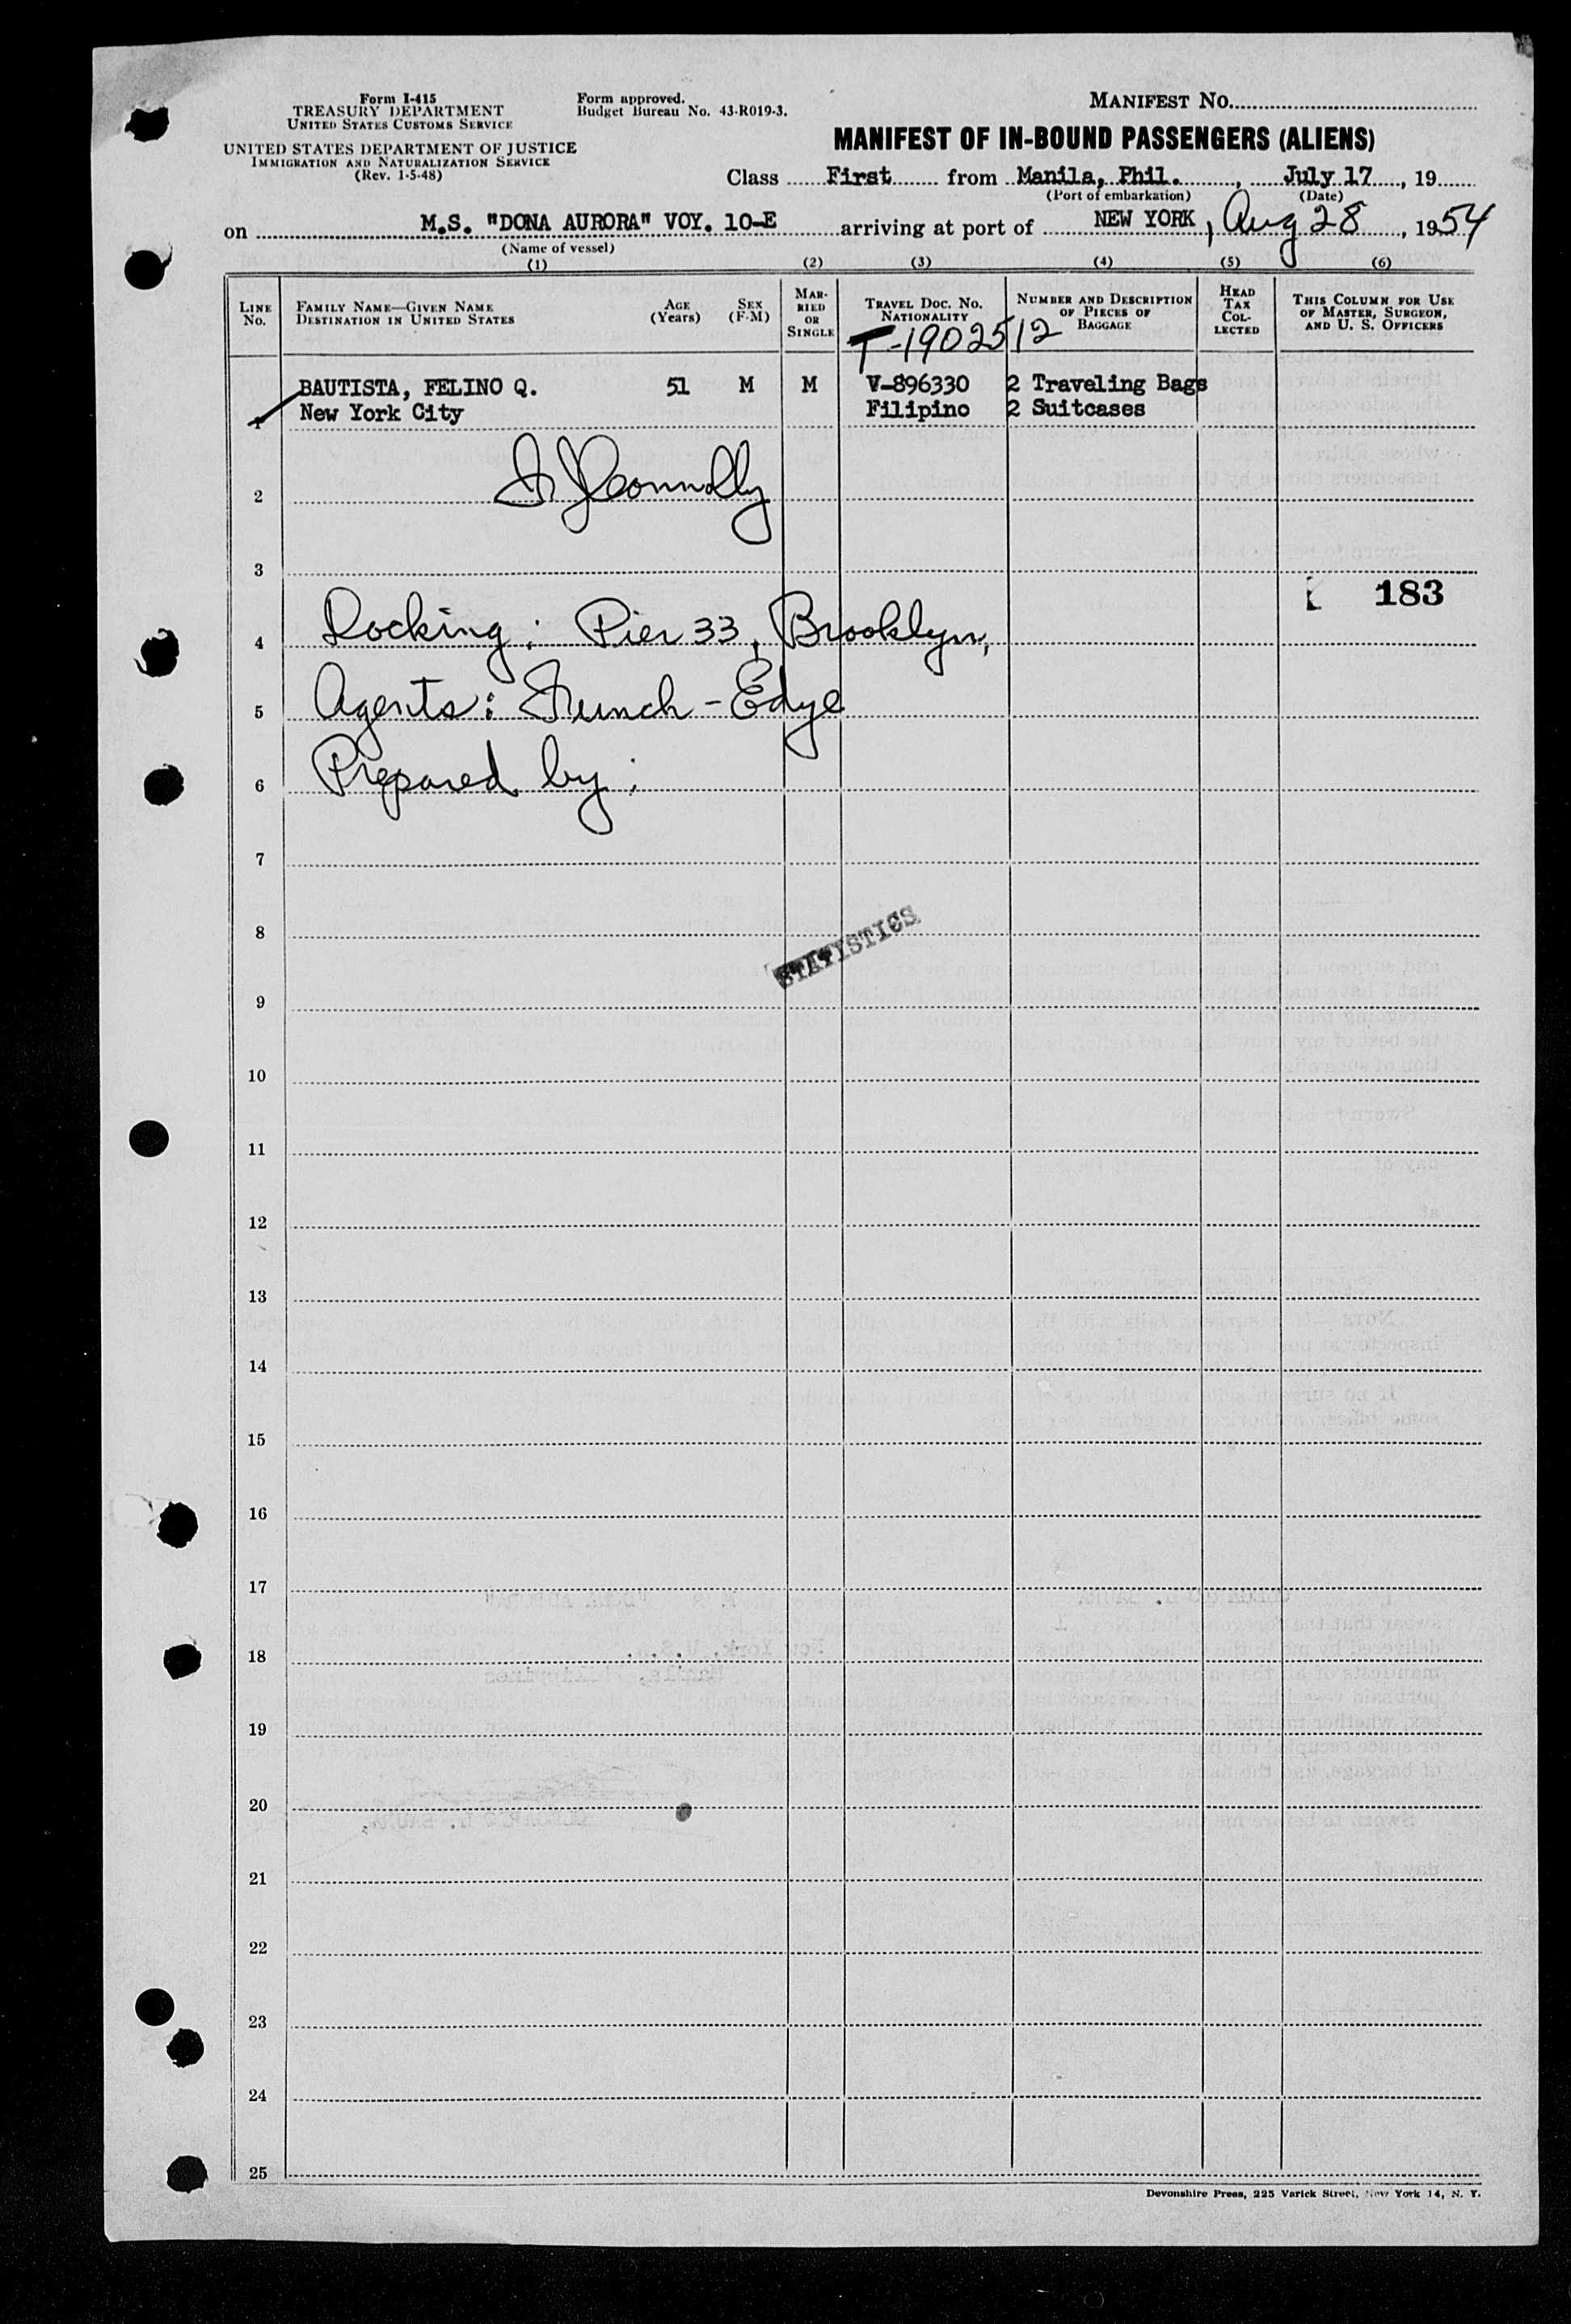 Form I-415
TREASURY DEPARTMENT
UNITED STATES CUSTOMS SERVICE
UNITED STATES DEPARTMENT OF JUSTICE
IMMIGRATION AND NATURALIZATION SERVICE
(Rev. 1-5-48)
Form approved.
Budget Bureau No. 43-R019-3.
MANIFEST NO.
MANIFEST OF IN-BOUND PASSENGERS (ALIENS)
Class First from Manila, Phil., July 17, 19
(Port of embarkation) (Date)
on M.S. "DONA AURORA" VOY. 10-E arriving at port of NEW YORK, Aug 28, 1954
(Name of vessel)
(1) (2) (3) (4) (5) (6)
LINE No. FAMILY NAME—GIVEN NAME DESTINATION IN UNITED STATES AGE (Years) SEX (F-M) MARRIED OR SINGLE TRAVEL DOC. NO. NATIONALITY NUMBER AND DESCRIPTION OF PIECES OF BAGGAGE HEAD TAX COLLECTED THIS COLUMN FOR USE OF MASTER, SURGEON, AND U. S. OFFICERS
T-1902512
BAUTISTA, FELINO Q. 51 M M V-896330 2 Traveling Bags
1 New York City Filipino 2 Suitcases
2 Connolly
3
183
4 Docking: Pier 33, Brooklyn,
5 Agents: Funch-Edye
6 Prepared by:
7
8
STATISTICS
9
10
11
12
13
14
15
16
17
18
19
20
21
22
23
24
25
Devonshire Press, 225 Varick Street, New York 14, N. Y.